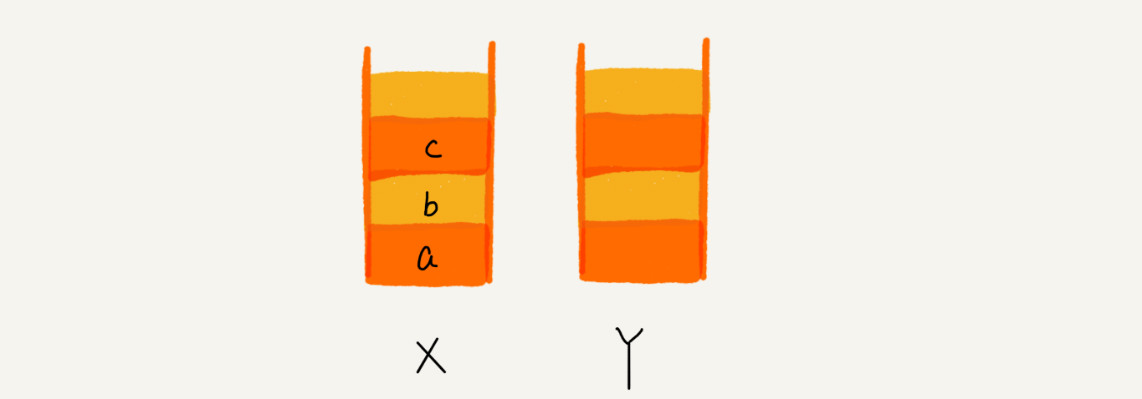 c
b
a
X Y